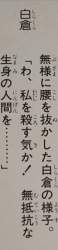 白倉
無様に腰を抜かした白倉の様子。
「わ、私を殺す気か！　無抵抗な
生身の人間を………」